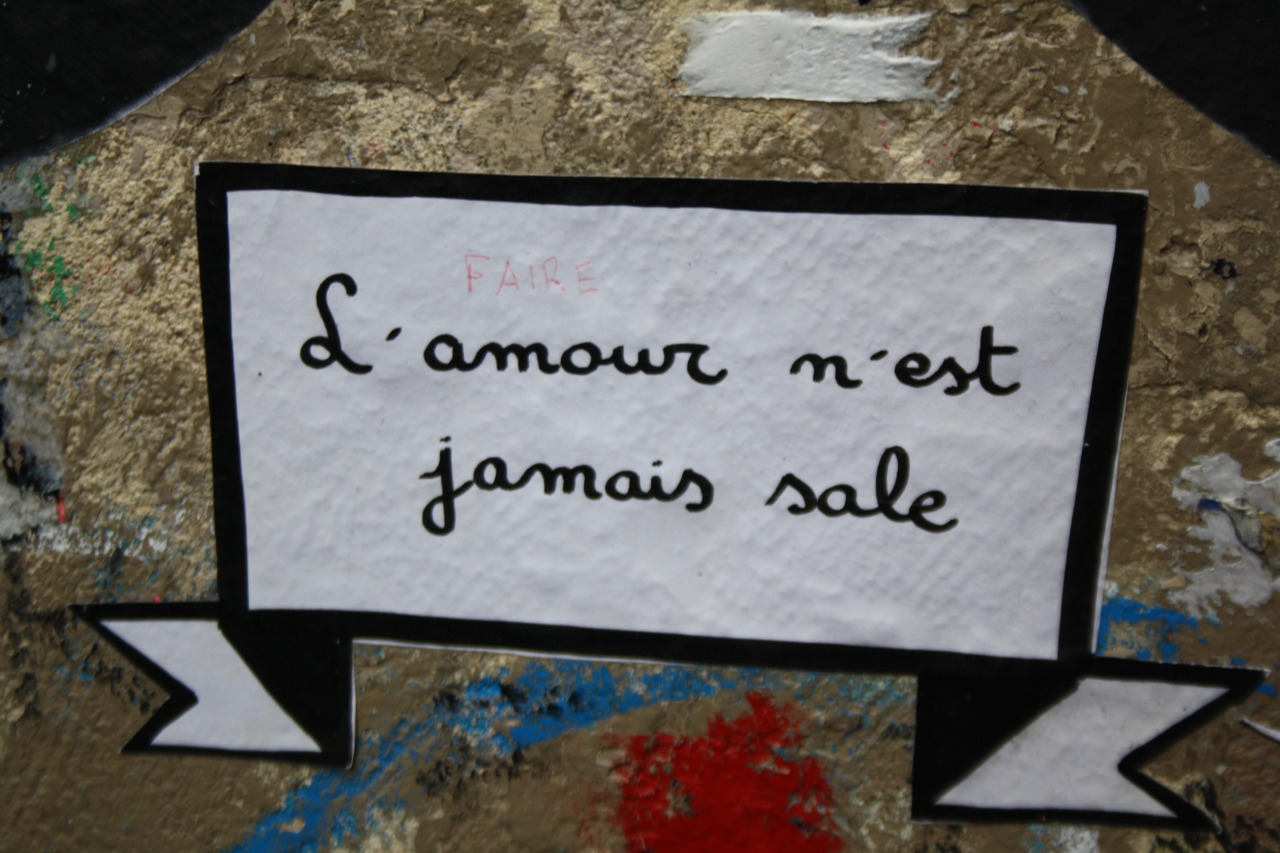 FAIRE
L'amour n'est
jamais sale